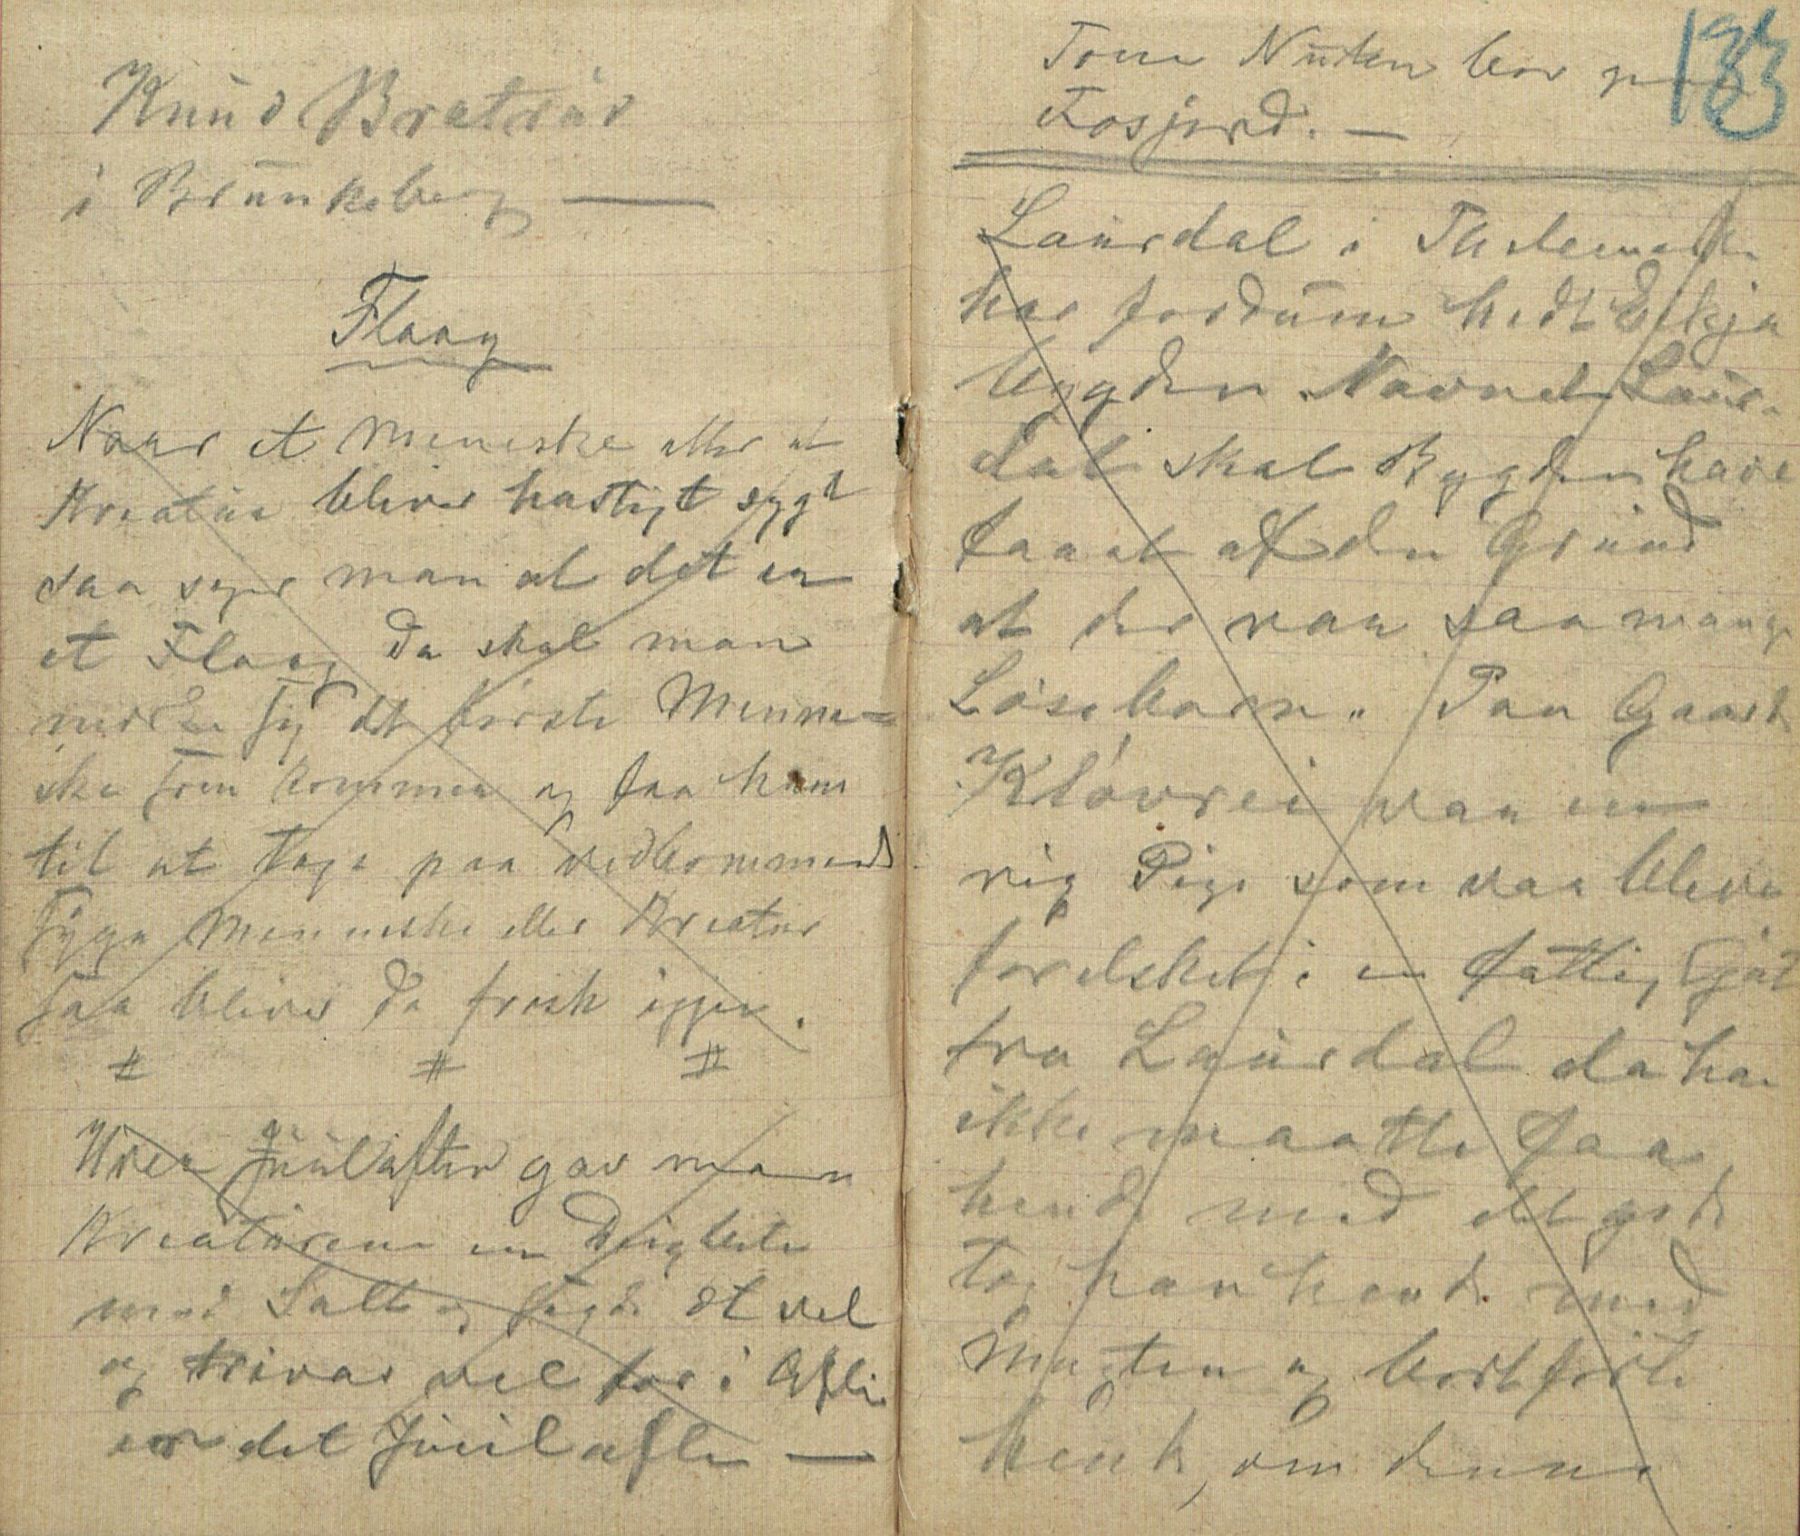 Knud Bratrud
i Brunkeberg —
Flaag
Naar et Meneske eller et
Kreatur bliver hastigt sygt
saa syer man at det er
et Flaag Da skal man
det første Menne=
ske som kommer og faa ham
til at tage paa vedkommende
syge Menneske eller Kreatur
saa bliver da frisk igjen.
# # #
Hver Juulaften gav man
Kreaturene en Deigbete
med Salt og sagde Et vel
og trivas vel for i Afta
er det Juulaften —
133
Tone Nuten bor paa
Fosjord. —
Laurdal i Thelemarken
har fordum hedt Eskja
bygden Navnet Laur-
dal skal Bygden have
faaet af den Grund
at der var saa mange
Løseborn. Paa Gaarde
Kløvrei var en
rig Pige som var bleven
forelsket i en fattig Gjut
fra Laurdal da han
ikke maatte faa
hende med det gode
tog han hende med
Magten og bortførte
hende, om denne